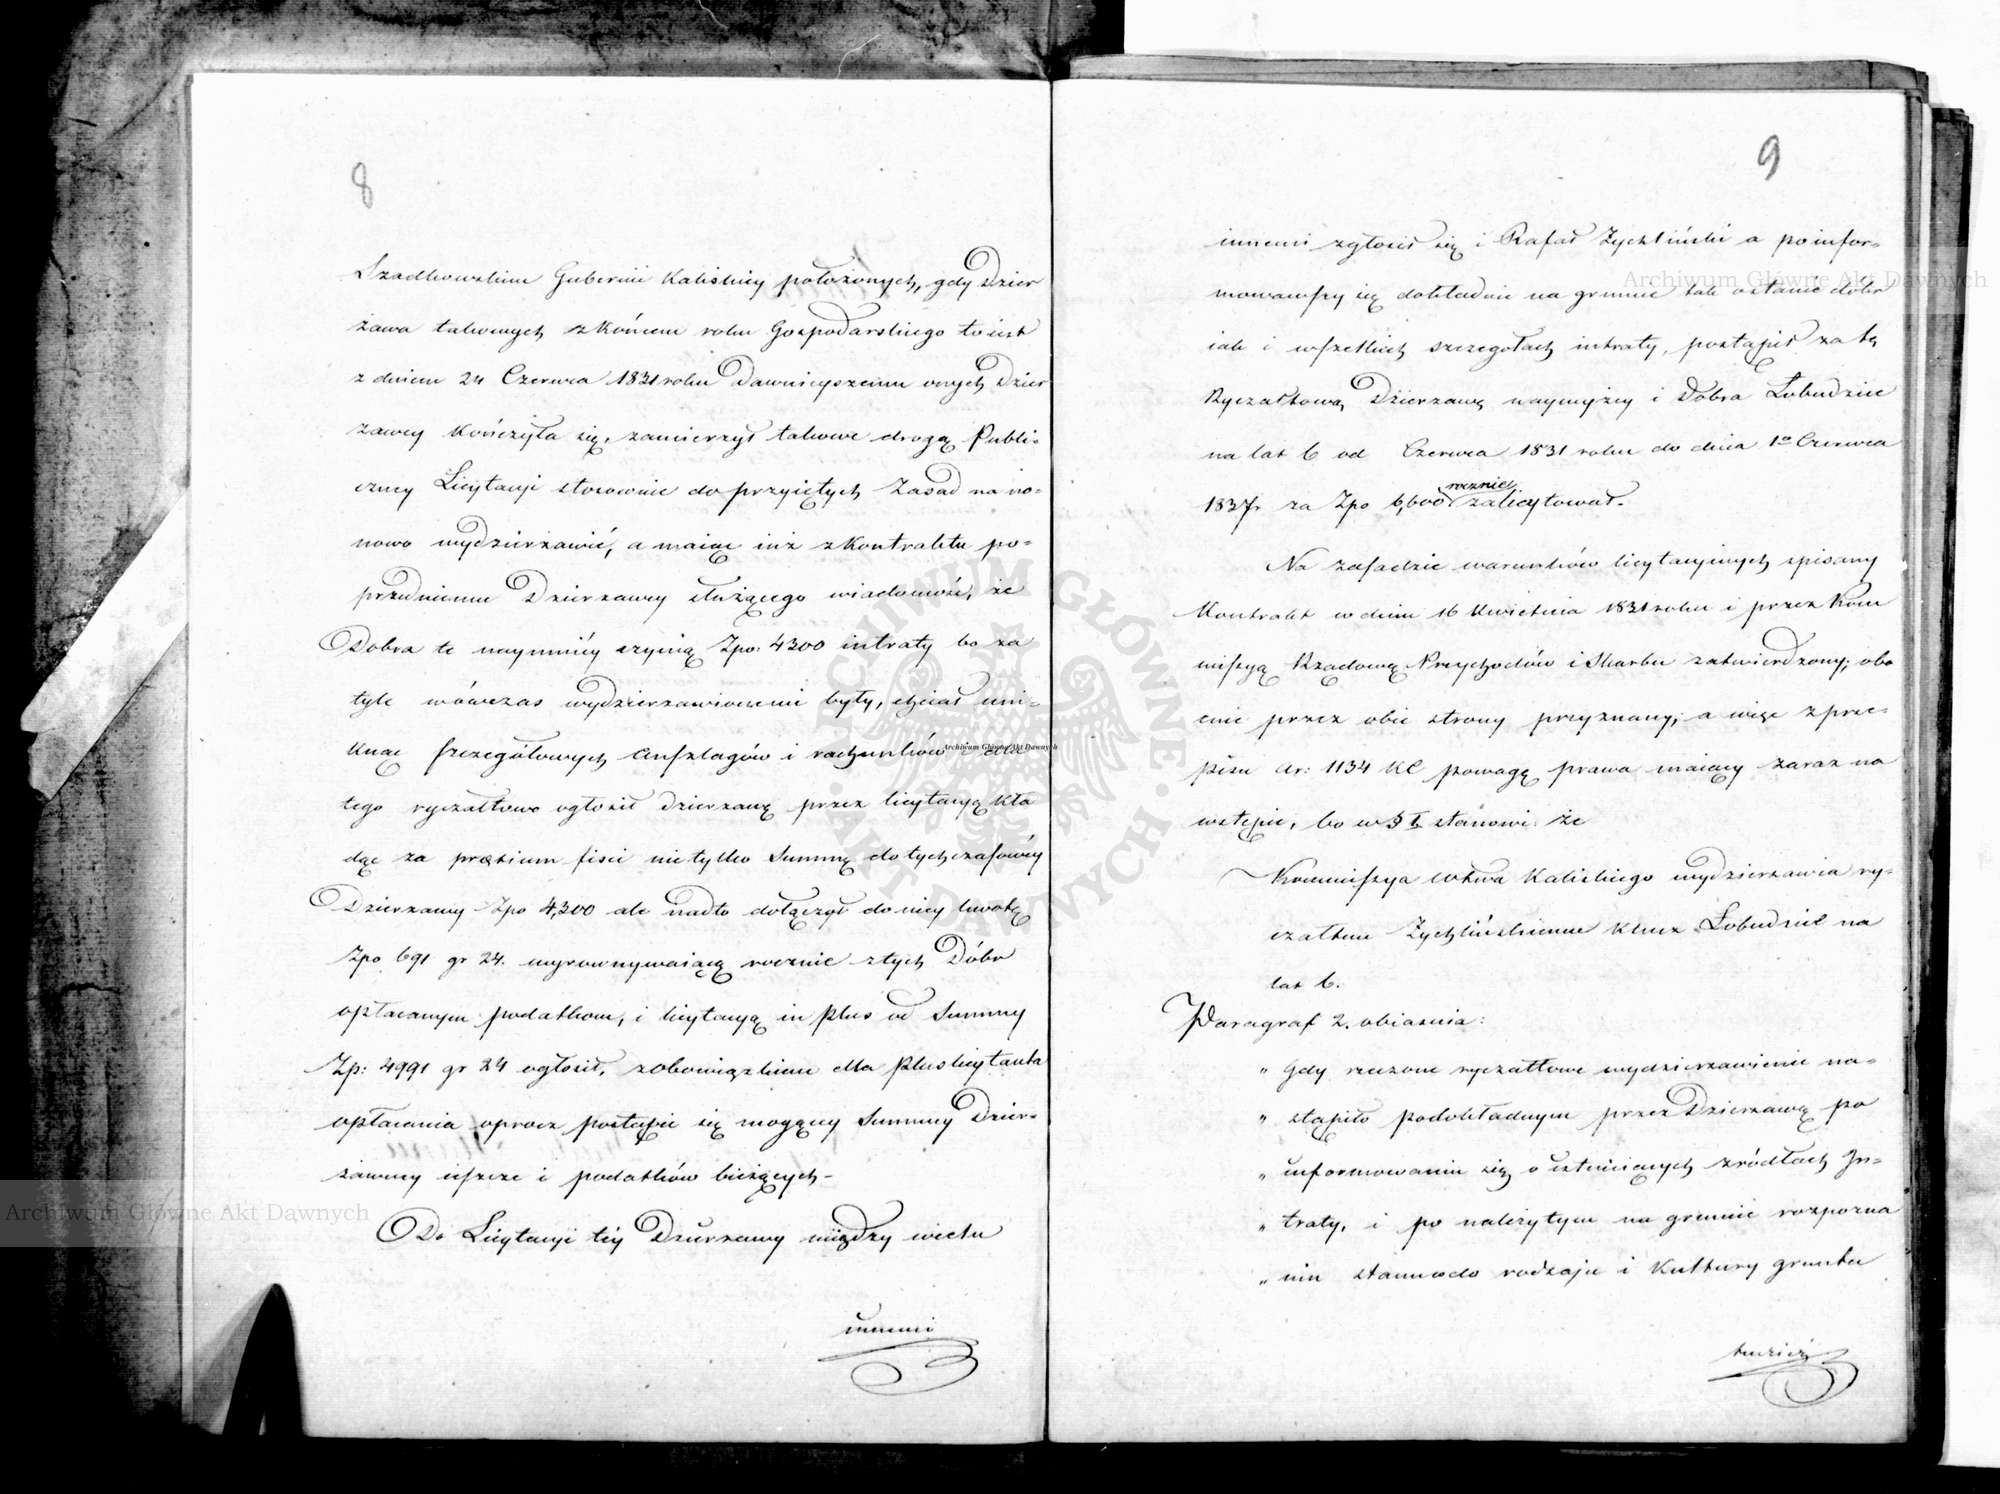 8
Szadkowskim Gubernii Kaliskiey położonych, gdy Dzier
żawa takowych z Końcem roku Gospodarskiego to iest
z dniem 24 Czerwca 1831 roku Dawnieyszemu onych Dzier
żawcy Kończyła się, zamierzył takowe drogą Publi=
czney Licytacyi stosownie do przyiętych Zasad na no=
nowo wydzierżawić, a maiąc iuż z Kontraktu po=
przedniemu Dzierżawcy służącego wiadomość, że
Dobra te naymniéy czynią Zpo: 4300 intraty bo za
tyle wówczas wydzierżawionemi były, chciał uni=
knąć szczegółowych Anszlagów i rachunków i dla
tego ryczałtowo ogłosił dzierżawę przez licytacyą kła
dąc za prætium fisci nie tylko Summę dotychczasowéy
Dzierżawy Zpo 4,300 ale nadto dołączył do niey kwotę
Zpo 691 gr 24. wyrownywaiącą rocznie z tych Dóbr
opłacanym podatkom, i licytacyą in Plus od Summy
Zp: 4991 gr 24 ogłosił, z obowiązkiem dla Pluslicytanta
opłacania oprocz postąpić się mogącey Summy Dzier=
żawney ieszcze i podatków bieżących -
Do Licytacyi téy Dzierżawy między wielu
innemi
9
innemi zgłosił się i Rafał Zychliński a poinfor=
mowawszy się dokładnie na gruncie tak o stanie dobr
iak i wszelkich szczegołach intraty, postąpił za tę
Ryczałtową Dzierżawę naywyżey i Dobra Łobudzice
na lat 6 od Czerwca 1831 roku do dnia 1o Czerwca
1837r za Zpo 6,600 rocznie zalicytował.
Na zasadzie warunków licytacyinych spisany
Kontrakt w dniu 16 Kwietnia 1831 roku i przez Kom
missyą Rządową Przychodów i Skarbu zatwierdzony; obe
cnie przez obie strony przyznany; a więc z prze=
pisu Ar: 1134 KC powagę prawa maiący zaraz na
wstępie, bo w § I stanowi: że
Kommissya Wtwa Kaliskiego wydzierżawia ry=
czałtem Zychlińskiemu Klucz Łobudzice na
lat 6.
Paragraf 2. obiasnia:
" Gdy rzeczone ryczałtowe wydzierżawienie na=
" stąpiło po dokładnym przez Dzierżawcę po
" informowaniu się o istnieiących zródłach In=
" traty, i po należytym na gruncie rozpozna
" niu stanu do rodzaju i Kultury gruntu